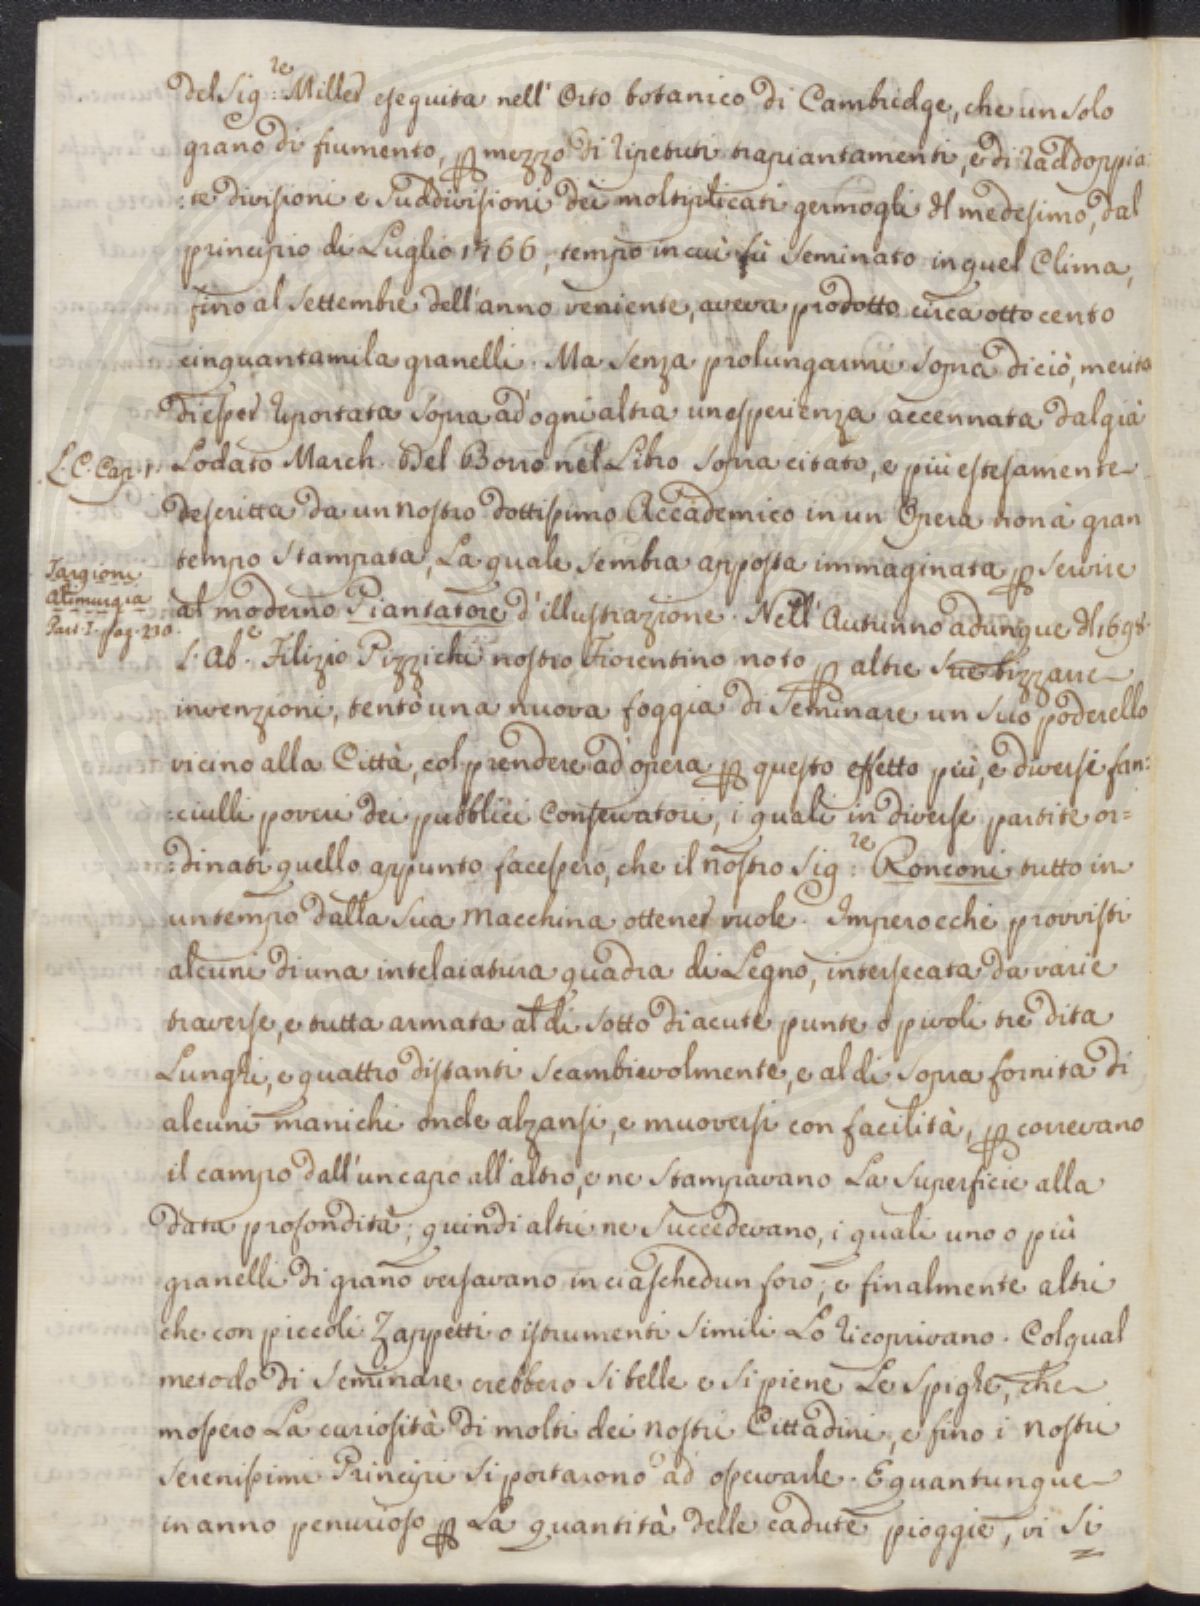 del Sig:re Miller eseguita nell' Orto botanico di Cambridge, che un solo
grano di frumento, p mezzo di ripetuti trapiantamenti, e di raddoppia:
:te divisioni e suddivisioni dei moltiplicati germogli dl medesimo, dal
principio di Luglio 1766, tempo in cui fù seminato in quel Clima,
fino al Settembre dell'anno veniente, aveva prodotto circa otto cento
cinquantamila granelli. Ma senza prolungarmi sopra di ciò, merita
di esser riportata sopra ad ogni altra un esperienza accennata dal già
L. C. Cap. 1. Lodato March. Del Borro nel Libro sopra citato, e più estesamente
descritta da un nostro dottissimo Accademico in un Opera non à gran
tempo stampata, La quale sembra apposta immaginata p servire
Targioni
Alimurgia
Part. I. pag. 210.
al moderno Piantatore d'illustrazione. Nell'Autunno adunque dl 1698.
l'Abe. Filizio Pizzichi nostro Fiorentino noto p altre sue bizzarre
invenzioni, tentò una nuova foggia di seminare un suo poderello
vicino alla Città, col prendere ad opera p questo effetto più, e diversi fan:
:ciulli poveri dei pubblici Conservatori, i quali in diverse partite or=
:dinati quello appunto facessero, che il nostro Sig:re Ronconi tutto in
un tempo dalla sua Macchina ottener vuole. Imperocchè provvisti
alcuni di una intelaiatura quadra di Legno, intersecata da varie
traverse, e tutta armata al di sotto di acute punte o pivoli tre dita
Lunghi, e quattro distanti scambievolmente, e al di sopra fornita di
alcuni manichi onde alzarsi, e muoversi con facilità, p correvano
il campo dall'un capo all'altro, e ne stampavano La superficie alla
data profondità; quindi altri ne succedevano, i quali uno o più
granelli di grano versavano in ciaschedun foro; e finalmente altri
che con piccoli Zappetti o istrumenti simili Lo ricoprivano. Col qual
metodo di seminare crebbero si belle e si piene Le spighe, che
mossero La curiosità di molti dei nostri Cittadini, e fino i nostri
Serenissimi Principi si portarono ad osservarle. E quantunque
in anno penurioso p La quantità delle cadute pioggie, vi si